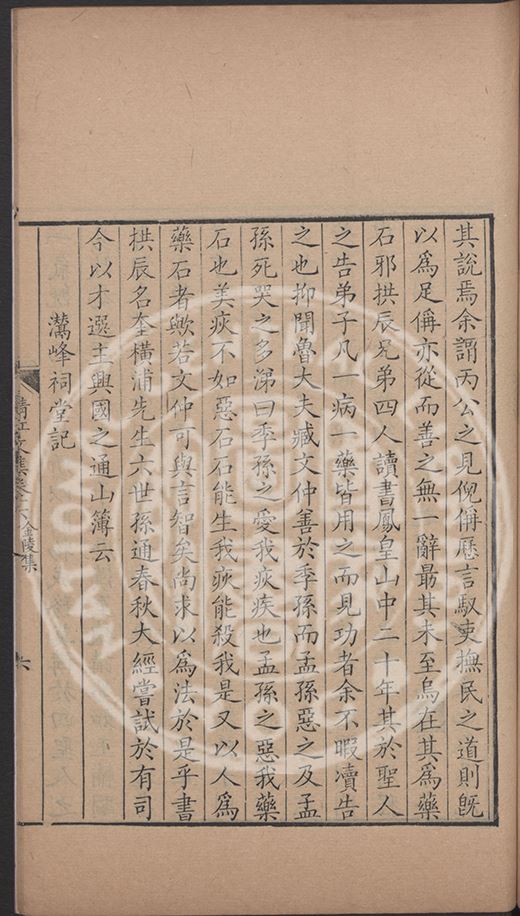 其說焉余謂丙公之見倪偁歷言馭吏撫民之道則旣
以爲足偁亦從而善之無一辭最其未至烏在其爲藥
石邪拱辰兄弟四人讀書鳳皇山中二十年其於聖人
之告弟子凡一病一藥皆用之而見功者余不暇瀆告
之也抑聞魯大夫臧文仲善於季孫而孟孫惡之及孟
孫死哭之多涕曰季孫之愛我疢疾也孟孫之惡我藥
石也美疢不如惡石石能生我疢能殺我是又以人爲
藥石者歟若文仲可與言智矣尚求以爲法於是乎書
拱辰名奎橫浦先生六世孫通春秋大經嘗試於有司
今以才選主興國之通山簿云
鷟峰祠堂記
清江
集卷六
金陵集
六